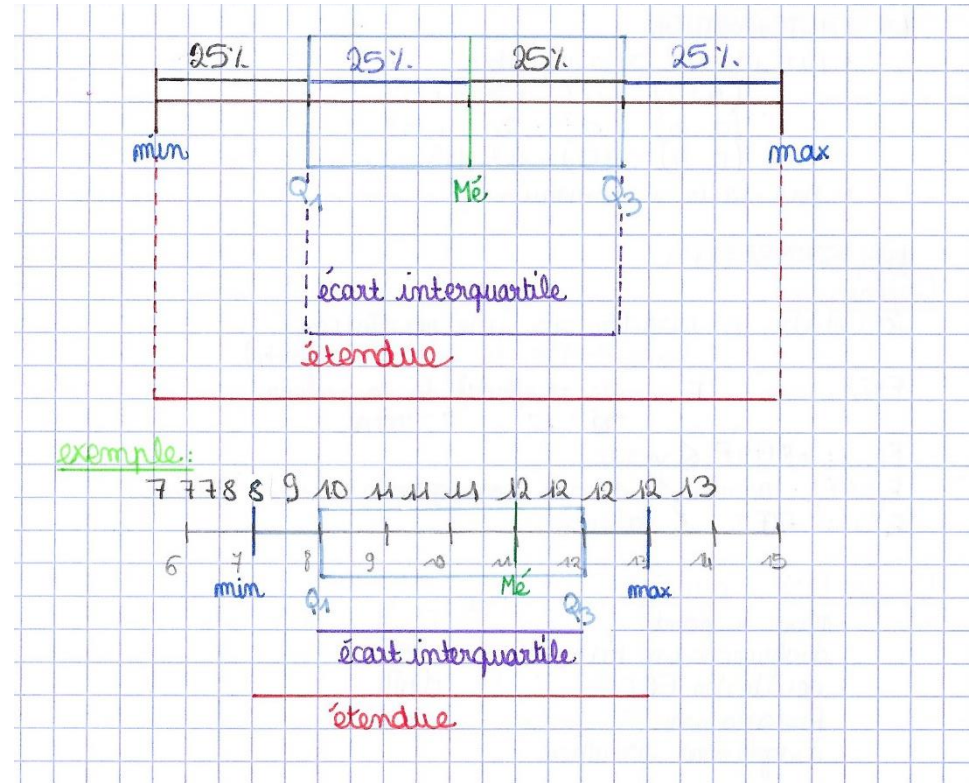 25% 25% 25% 25%
min max
Q1 Mé Q3
écart interquartile
étendue
exemple:
7 7 7 8 8 9 10 11 11 11 12 12 12 12 13
6 7 8 9 10 11 12 13 14 15
min Q1 Mé Q3 max
écart interquartile
étendue